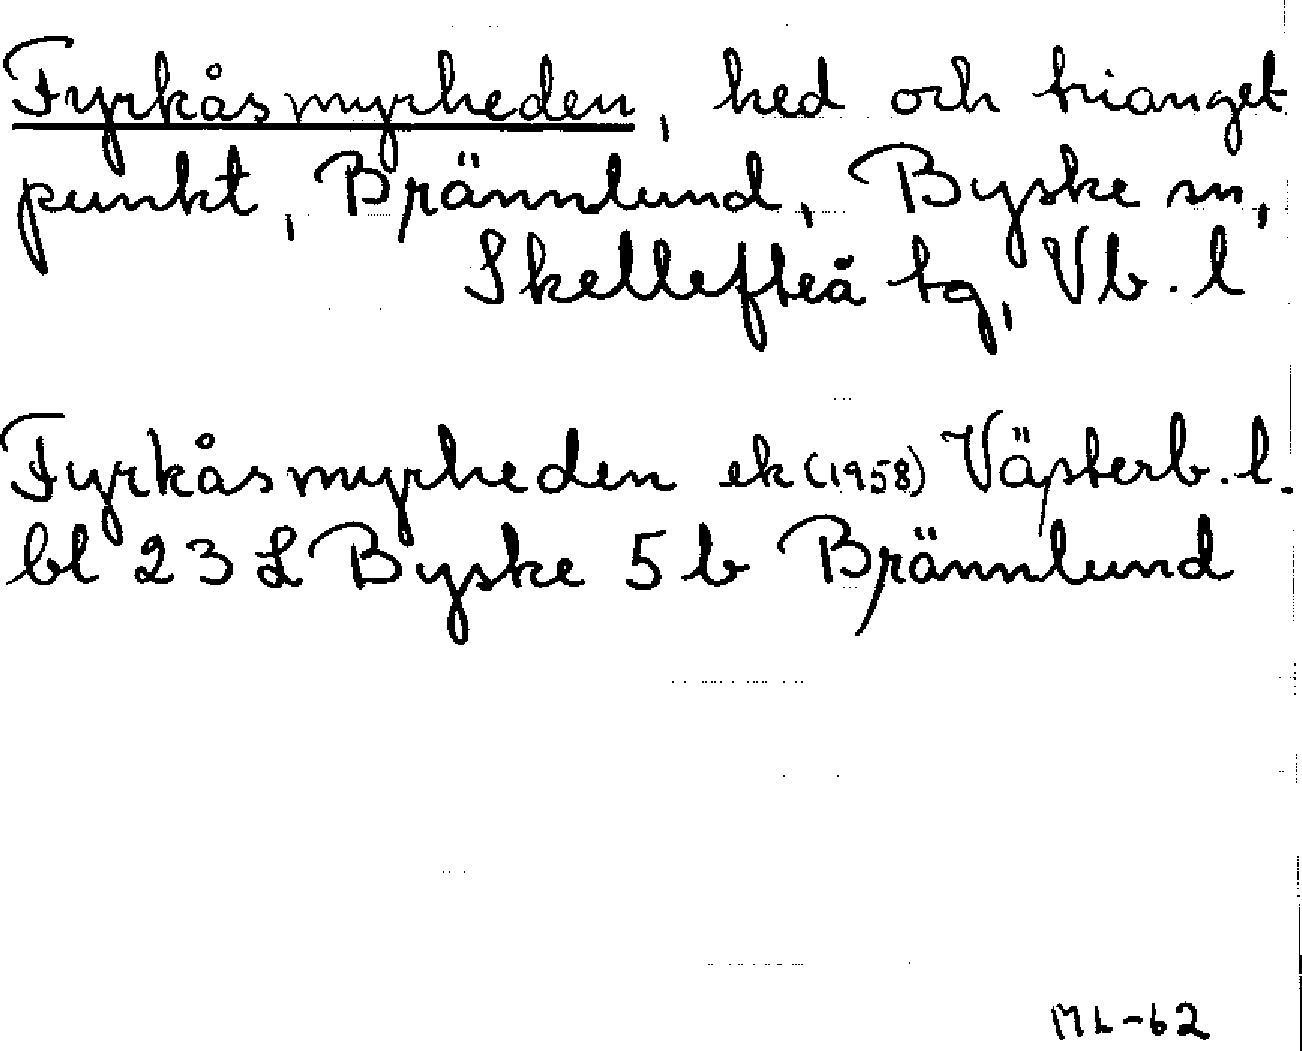 Fyrkåsmyrheden, hed och trianget
punkt, Brännlund, Byske sn,
Skellefteå tg, Vb. l
Fyrkåsmyrheden ek (1958) Västerb. l.
bl 23 L Byske 5 b Brännlund
ML-62